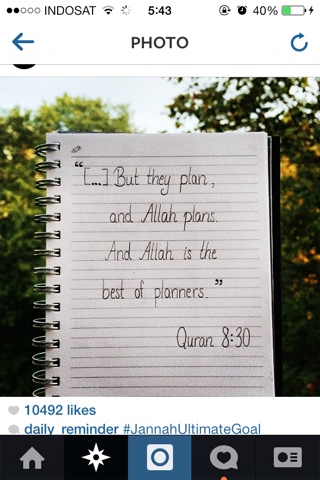 INDOSAT 5:43 40%
PHOTO
“[...] But they plan,
and Allah plans.
And Allah is the
best of planners.”
Quran 8:30
10492 likes
daily_reminder #JannahUltimateGoal